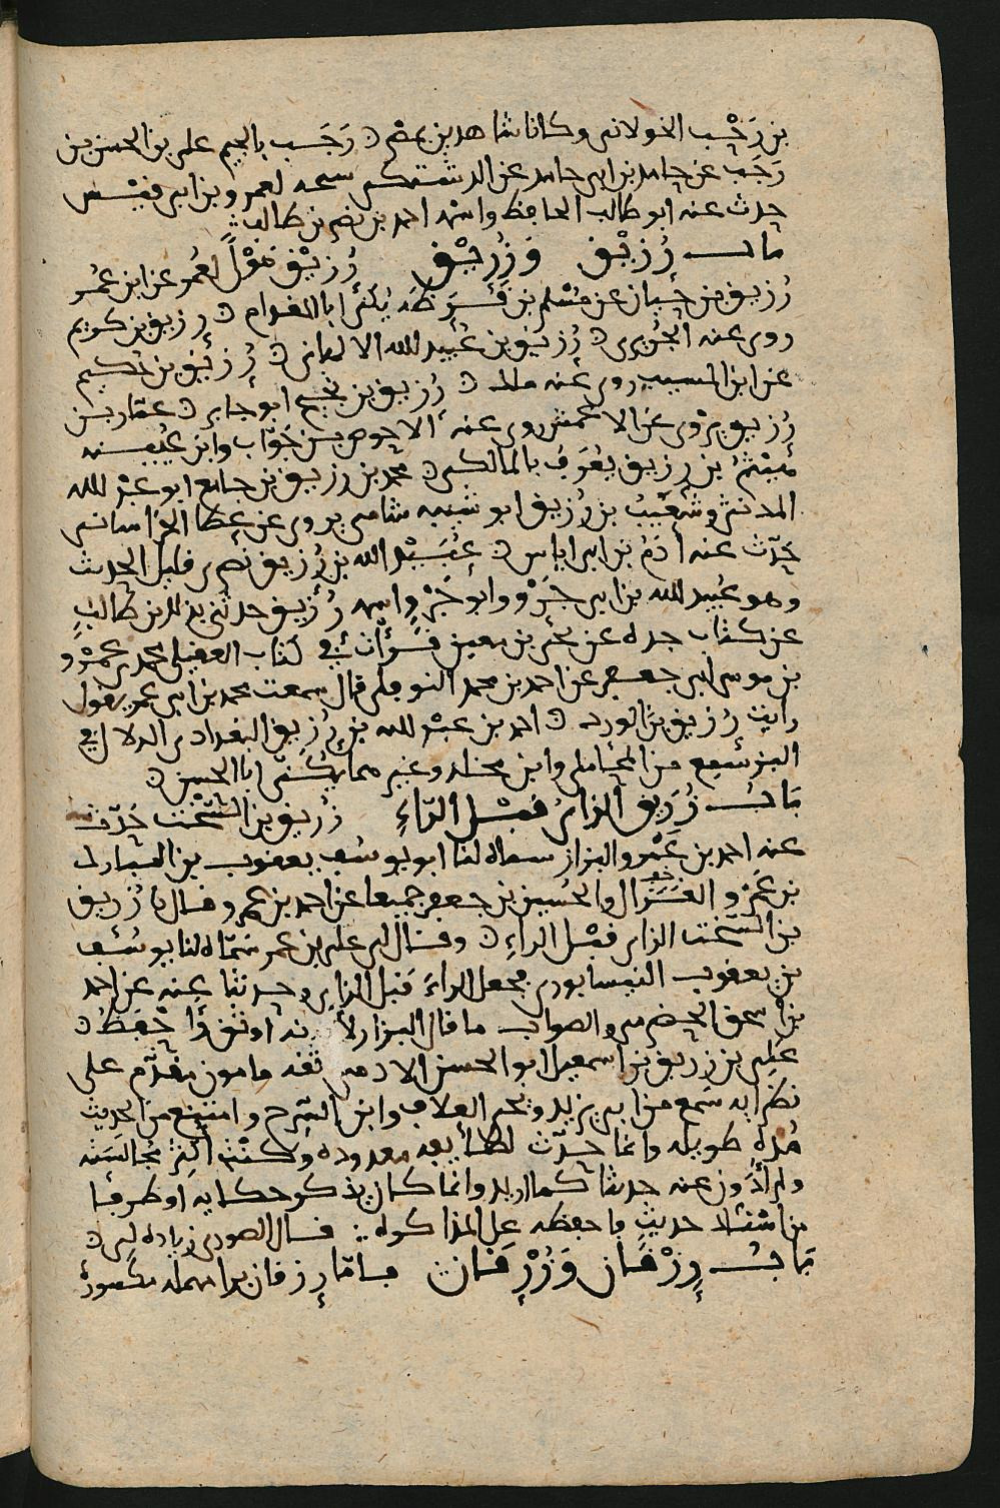 بن رَجَب الخولاني وكانا شاهدين بمصر ۞ رَجَب بالجيم علي بن الحسن بن
رَجَب عن حامد بن ابي حامد عن الدشتكي سمعه لعمرو بن ابي قيس
حدث عنه ابو طالب الحافظ واسمه احمد بن نصر بن طالب
باب رُزَيْق وَزُرَيْق رُزَيْق مَوْلًى لعُمر عن ابن عُمر
رُزيق بن حيان عن مسلم بن قَرَظَه يُكنى ابا المقدام ۞ رزيق بن كريم
روى عنه الجُريري ۞ رُزيق بن عُبيد الله الالهاني ۞ رُزَيْق بن حُكيم
عن ابن المسيب روى عنه مالك ۞ رُزيق بن نجيح ابو جابر ۞ عمّار بن
رُزيق يروى عن الاعمش روى عنه الاحوص بن جوّاب وابن عُيينه
مَيْثَمُ بن رزيق يُعْرَفُ بالمالكي ۞ محمد بن رزيق بن جامع ابو عبد الله
المدني وشُعَيْبُ بن رُزيق ابو شيبه شامي يروى عن عطا الخراساني
حَدّث عنه ادَمُ بن ابي اياس ۞ عُبَيْد الله بن رُزيق بصري قليل الحديث
وهو عُبيد الله بن ابي جَرْو وابو جَرْوٍ اسمه رُزيق حدثني بذلك ابن طالبٍ
عن كتاب جده عن يحيى بن معين قَرَأتُ في كتاب العقيلي محمد بن عَمْرٍو
بن موسى ابي جعفر عن احمد بن محمد النوفلي قال سمعت محمد بن ابي عمر يقول
رايت رُزيق بن الورد ۞ احمد بن عبد الله بن رُزيق البغدادي الدلال في
البز سَمِع من المحاملي وابن مخلد وغيرهما يُكنى ابا الحسن ۞
بَابُ زُرَيق الزايُ قبْل الرّاءِ زُريق بن السّخت حَدّث
عنه احمد بن عَمْرو البزاز سماه لنا ابو يوسُف يعقوب بن المبارك
بن عَمرو الغَزال والحُسين بن جعفر جميعا عن احمد بن عمرو فقال نا زُريق
بن السَّخت الزاي قبْل الراءِ ۞ وقال لي علي بن عمر سَمّاه لنا يوسُف
بن يعقوب النيسابوري فجعل الراءَ قبل الزاي وحدثنا عنه عن احمد
بن اسحق الحضرمي والصواب ما قال البزار لأنه أوثق وَأَحْفَظُ ۞
عَلِي بن زُريق بن اسمعيل ابو الحسن الادمي ثقه مامون مقدّم على
نظرايه سَمع من ابي يزيد ويحيى العلاف وابن السّرح وامتنع من الحديث
مُدةً طويله وانما حَدّث لطايفه معدوده وكنْتُ اُكثِرُ مُجالَسَته
ولم أدَوّن عنه حديثا كما اريد وانما كان يذكر حكايه او طرفا
من اسْتِلَاد حديثٍ فاحفظه على المذاكره ۞ قال الصوري زياده لي ۞
بَابُ رِزْقَان وَزُرْقَان فامّا رِزقان برا مهمله مكسورة